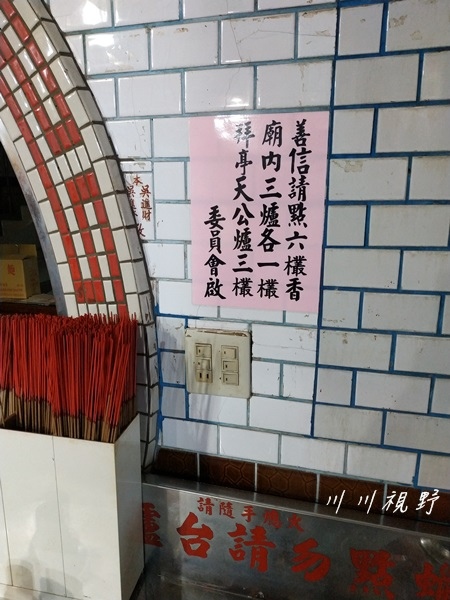 善信請點六欉香
廟內三爐各一欉
拜亭天公爐三欉
委員會啟
吳進財
請隨手
爐台請勿點蠟
川川視野